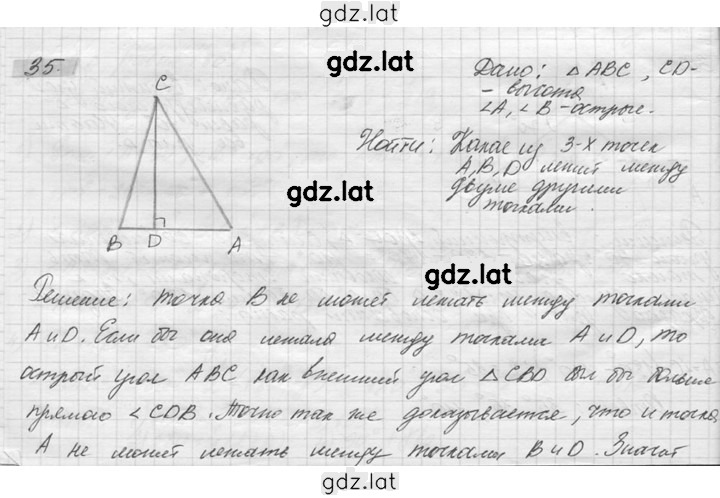 gdz.lat
35.
gdz.lat
Дано: △ ABC, CD-
- высота
∠A, ∠B - острые.
C
Найти: Какая из 3-х точек
A, B, D лежит между
двумя другими
точками.
gdz.lat
B D A
gdz.lat
Решение: точка B не может лежать между точками
A и D. Если бы она лежала между точками A и D, то
острый угол ABC как внешний угол △CBD был бы больше
прямого ∠CDB. Точно так же доказывается, что и точка
A не может лежать между точками B и D. Значит
gdz.lat